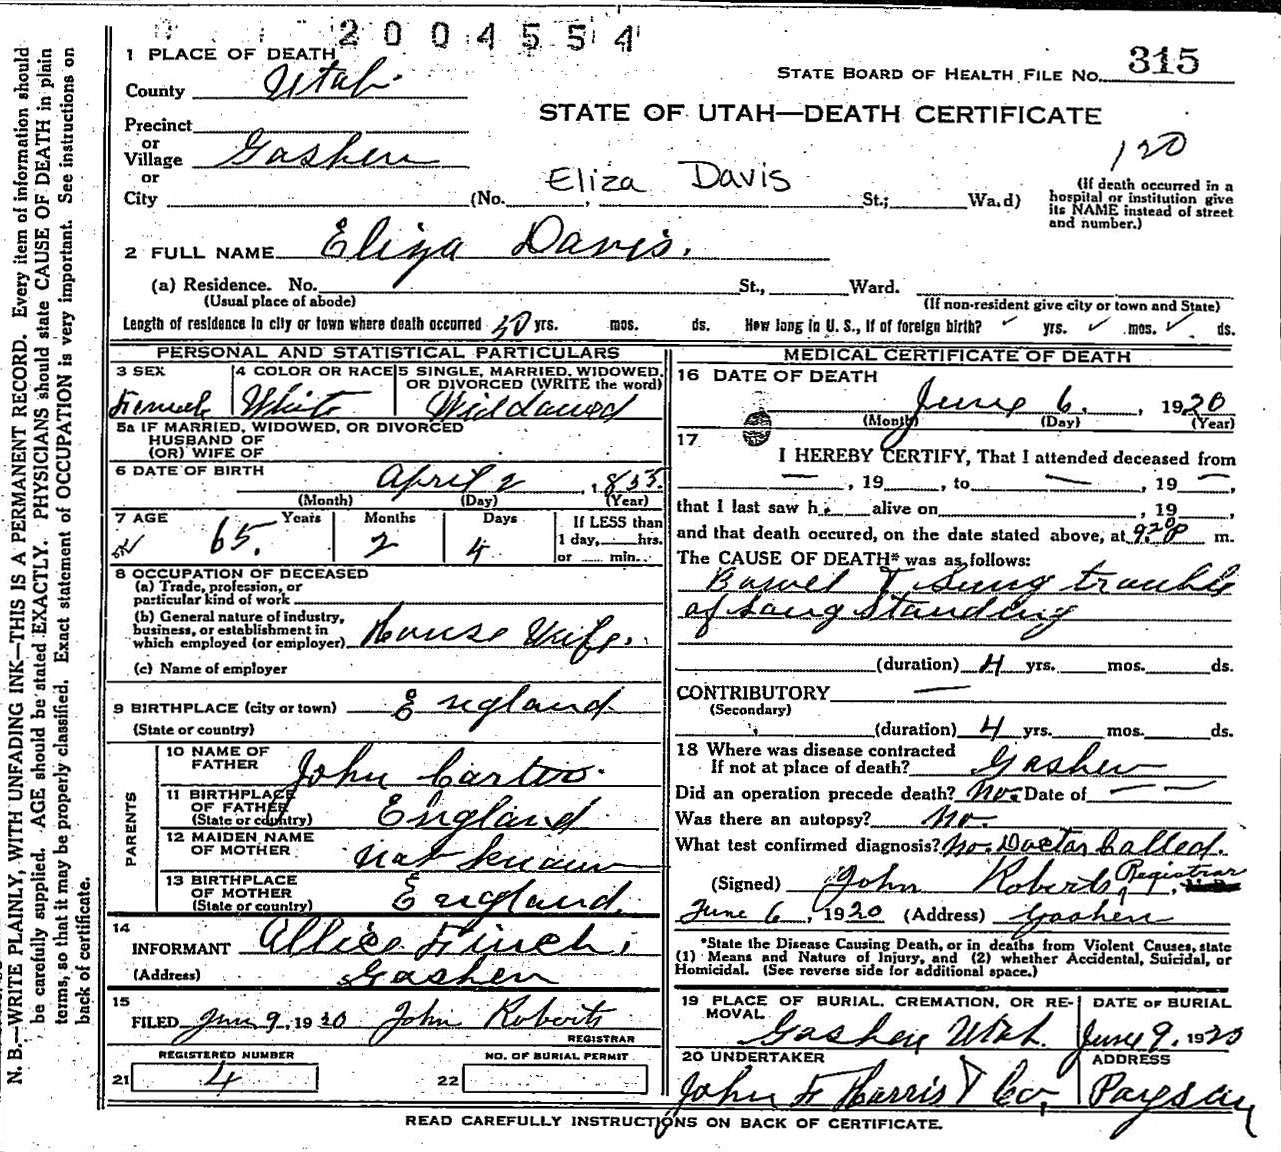 2004554
1 PLACE OF DEATH
STATE BOARD OF HEALTH FILE NO. 315
County Utah
STATE OF UTAH—DEATH CERTIFICATE
Precinct
or
Village Goshen
120
or
City (No. , Eliza Davis St.; Wa.d)
(If death occurred in a
hospital or institution give
its NAME instead of street
and number.)
2 FULL NAME Eliza Davis.
(a) Residence. No. St., Ward.
(Usual place of abode) (If non-resident give city or town and State)
Length of residence in city or town where death occurred yrs. mos. ds. How long in U. S., if of foreign birth? yrs. mos. ds.
PERSONAL AND STATISTICAL PARTICULARS
3 SEX
Female
4 COLOR OR RACE
White
5 SINGLE, MARRIED, WIDOWED,
OR DIVORCED (WRITE the word)
Widdowed
5a IF MARRIED, WIDOWED, OR DIVORCED
HUSBAND OF
(OR) WIFE OF
6 DATE OF BIRTH
April 2, 1855.
(Month) (Day) (Year)
7 AGE Years Months Days
65. 2 4
If LESS than
1 day, hrs.
or min.
8 OCCUPATION OF DECEASED
(a) Trade, profession, or
particular kind of work
(b) General nature of industry,
business, or establishment in
which employed (or employer) House Wife.
(c) Name of employer
9 BIRTHPLACE (city or town) England
(State or country)
PARENTS
10 NAME OF
FATHER John Carter.
11 BIRTHPLACE
OF FATHER
(State or country) England
12 MAIDEN NAME
OF MOTHER Not Known
13 BIRTHPLACE
OF MOTHER
(State or country) England.
14
INFORMANT Allice Finch.
(Address) Goshen
15
FILED June 9, 1920 John Roberts
REGISTRAR
REGISTERED NUMBER
21 4
NO. OF BURIAL PERMIT
22
MEDICAL CERTIFICATE OF DEATH
16 DATE OF DEATH
June 6, 1920
(Month) (Day) (Year)
17
I HEREBY CERTIFY, That I attended deceased from
— , 19 , to — , 19 — ,
that I last saw h alive on , 19 ,
and that death occured, on the date stated above, at 9.20P m.
The CAUSE OF DEATH* was as follows:
Bowel & Lung trouble
of Long Standing
(duration) 4 yrs. mos. ds.
CONTRIBUTORY —
(Secondary)
(duration) 4 yrs. mos. ds.
18 Where was disease contracted
If not at place of death? Goshen
Did an operation precede death? No. Date of — —
Was there an autopsy? No.
What test confirmed diagnosis? No Doctor Called.
(Signed) John Roberts, Registrar
June 6, 1920 (Address) Goshen
*State the Disease Causing Death, or in deaths from Violent Causes, state
(1) Means and Nature of Injury, and (2) whether Accidental, Suicidal, or
Homicidal. (See reverse side for additional space.)
19 PLACE OF BURIAL, CREMATION, OR RE-
MOVAL
Goshen Utah.
DATE OF BURIAL
June 9, 1920
20 UNDERTAKER
John F Harris & Co,
ADDRESS
Payson
READ CAREFULLY INSTRUCTIONS ON BACK OF CERTIFICATE.
N. B.—WRITE PLAINLY, WITH UNFADING INK—THIS IS A PERMANENT RECORD. Every item of information should
be carefully supplied. AGE should be stated EXACTLY. PHYSICIANS should state CAUSE OF DEATH in plain
terms, so that it may be properly classified. Exact statement of OCCUPATION is very important. See instructions on
back of certificate.